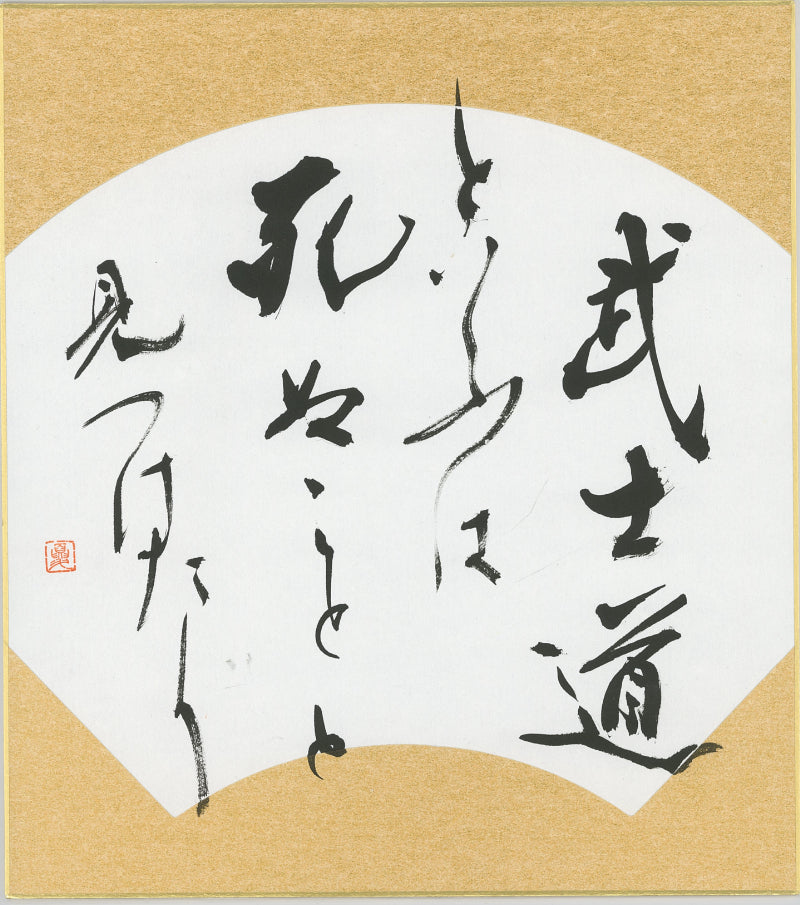 武士道
といふは
死ぬことと
見つけたり